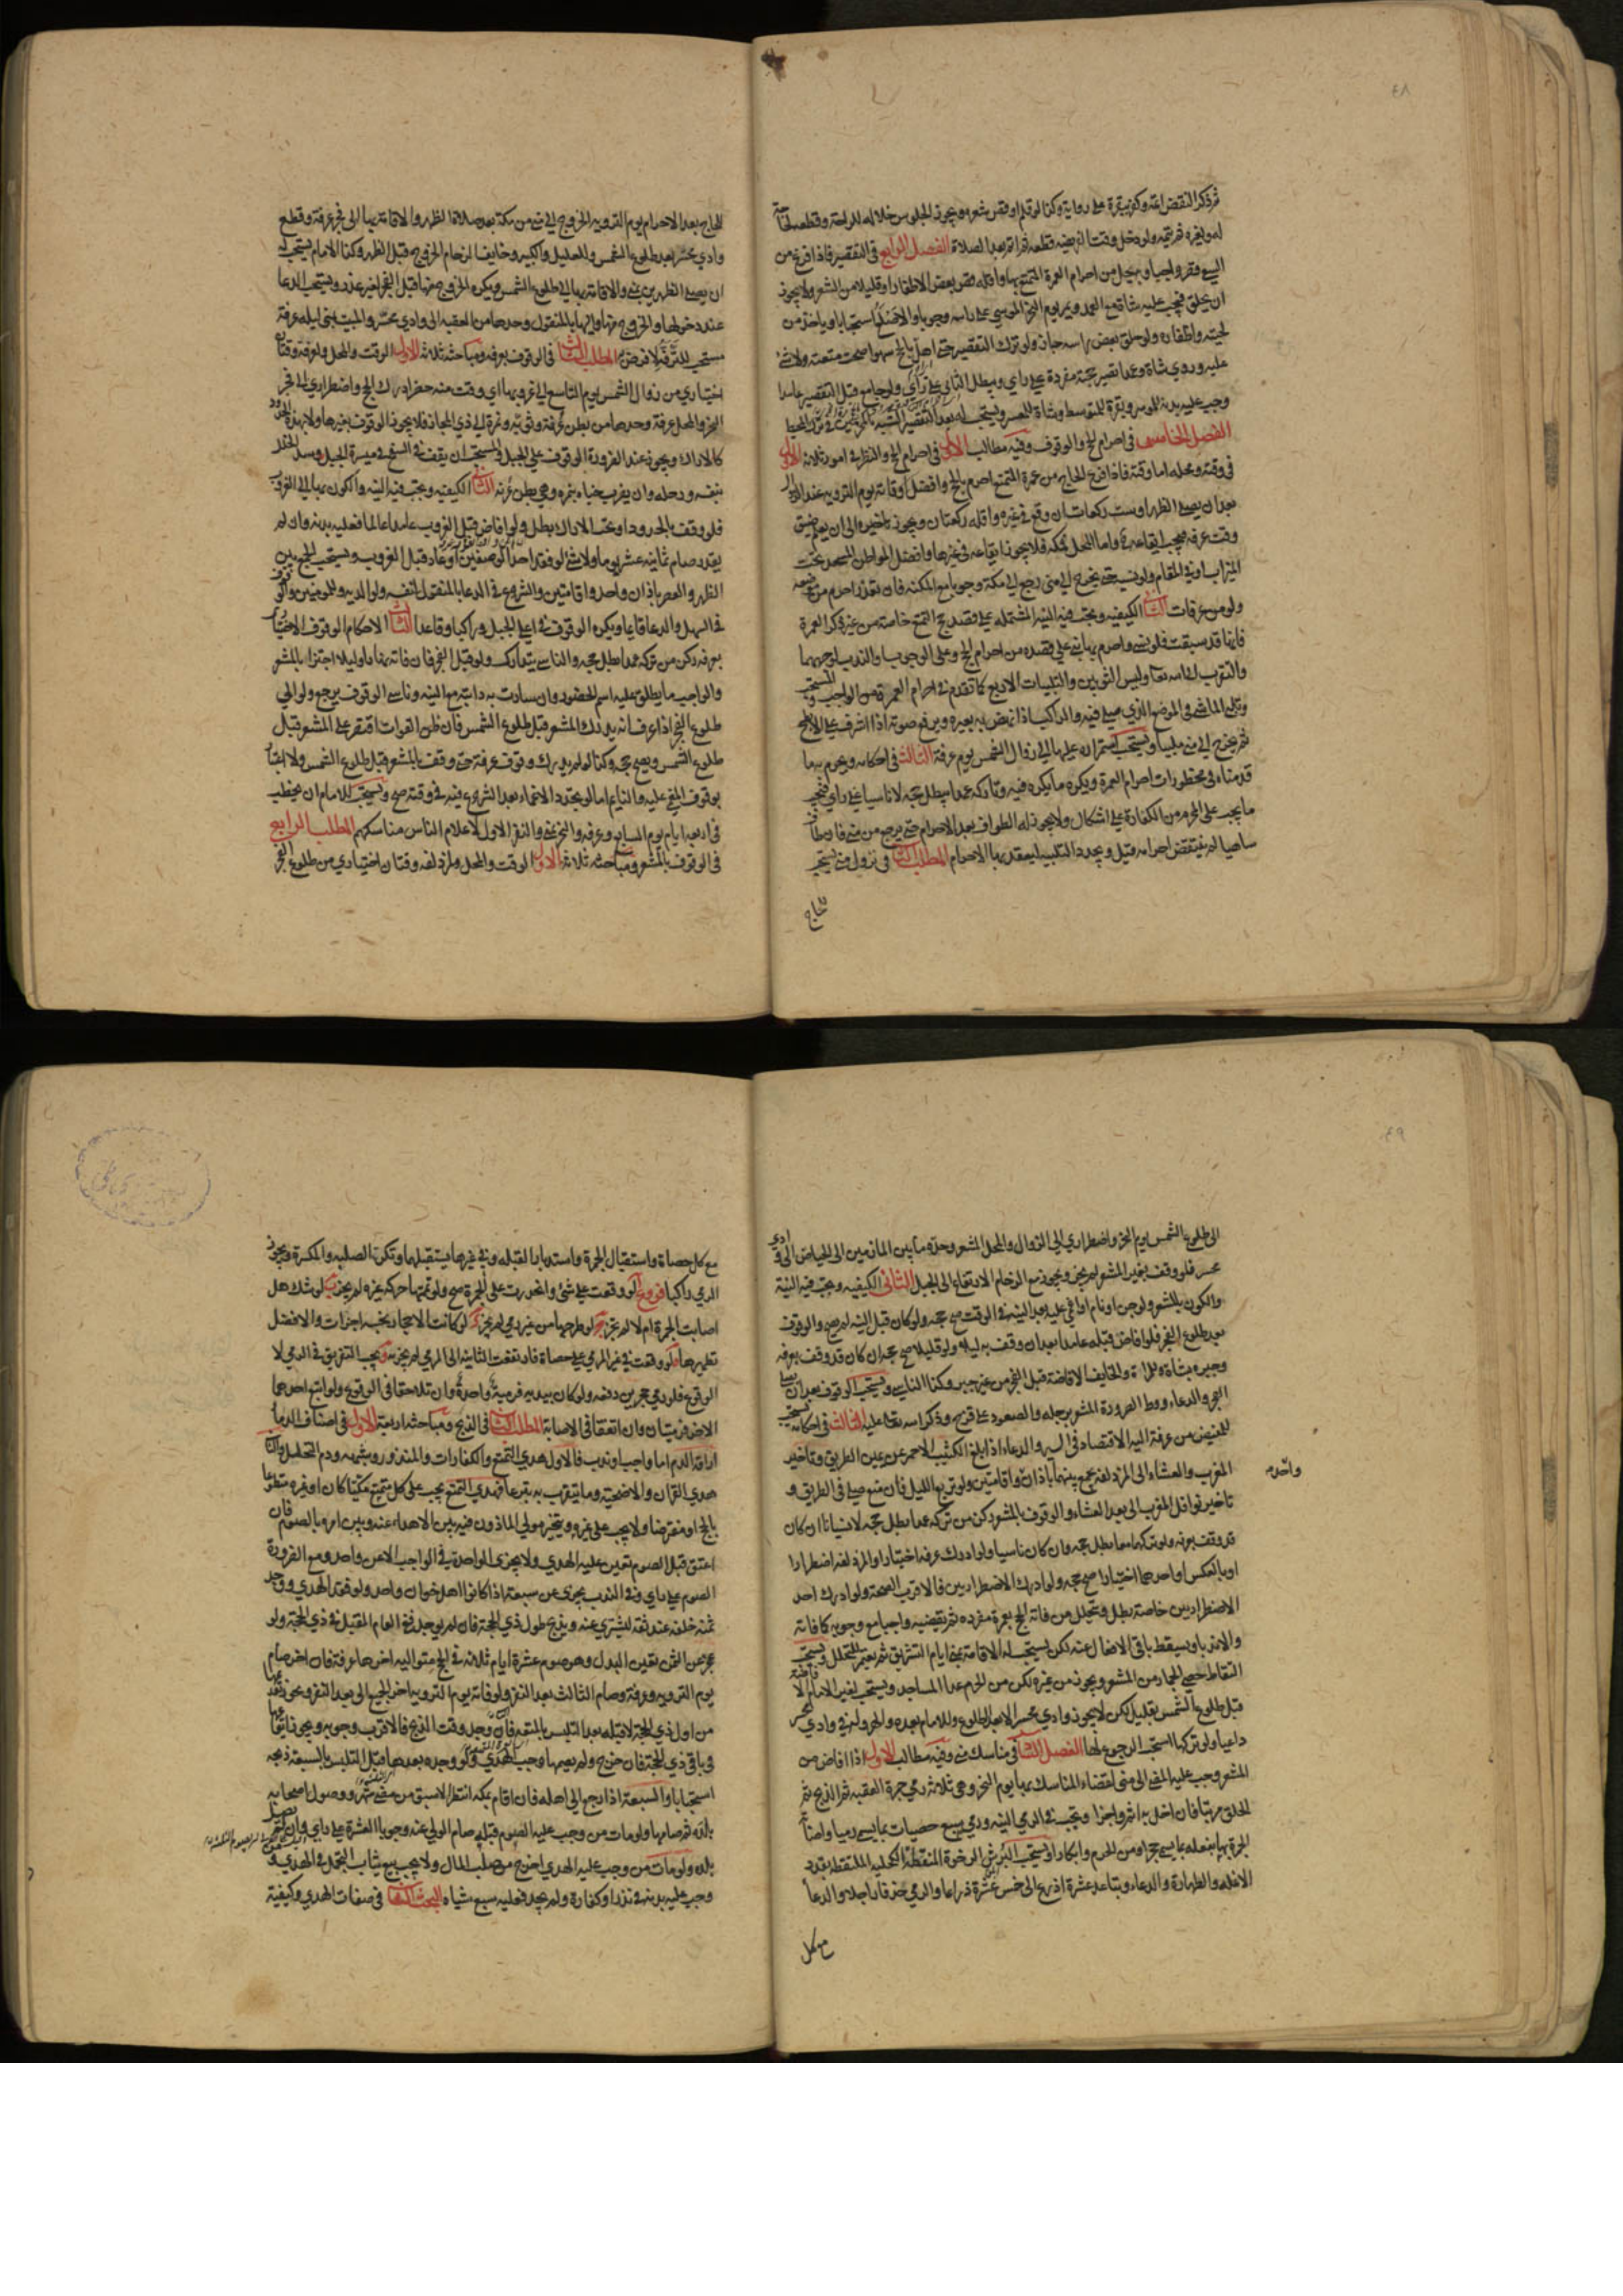 ٤٨
ثم ذكر النقص اتمه وكفر ببقرة على رواية وكذا لو قلم او قص شعره ويجوز الجلوس خلاله للراحة وقطعه لحاجة
له ولغيره ثم يتمه ولو دخل وقت الفريضة قطعه ثم اتم بعد الصلاة الفصل الرابع في التقصير فاذا فرغ من
السعي قصر واجبا وبه يحل من احرام العمرة المتمتع بها واقله قص بعض الاظفار او قليلا من الشعر ولا يجوز
ان يحلق فيجب عليه شاة مع العمد ويمر يوم النحر الموسى على راسه وجوبا والاصلع استحبابا وياخذ من
لحيته واظفاره ولو حلق بعض راسه جاز ولو ترك التقصير حتى اهل بالحج سهوا صحت متعته ولا شئ
عليه وروي شاة وعمدا تصير حجة مفردة على راي ويبطل الثاني على راي ولو جامع قبل التقصير عامدا
وجب عليه بدنة للموسر وبقرة للمتوسط وشاة للمعسر ويستحب له بعد التقصير التشبه بالمحرمين في ترك المخيط
الفصل الخامس في احرام الحج والوقوف وفيه مطالب الاول في احرام الحج والنظر في امور ثلاثة الاول
في وقته ومحله اما وقته فاذا فرغ الحاج من عمرة التمتع احرم بالحج وافضل اوقاته يوم التروية عند الزوال
بعد ان يصلي الظهر او ست ركعات ان وقع في غيره واقله ركعتان ويجوز تاخيره الى ان يعلم ضيق
وقت عرفة فيجب ايقاعه ح واما المحل فمكة فلا يجوز ايقاعه في غيرها وافضل المواطن المسجد تحت
الميزاب او في المقام ولو نسيه حتى يخرج الى منى رجع الى مكة وجوبا مع المكنة فان تعذر احرم من موضعه
ولو من عرفات الثاني الكيفية ويجب فيه النية المشتملة على قصد حج التمتع خاصة من غير ذكر العمرة
فانها قد سبقت فلو نسي واحرم بها بنى على قصده من احرام الحج وعلى الوجوب او الندب لوجههما
والتقرب الى الله تعا ولبس الثوبين والتلبيات الاربع كما تقدم في احرام العمرة من الواجب والمستحب
ويلبي الماشي في الموضع الذي صلى فيه والراكب اذا نهض به بعيره ويرفع صوته اذا اشرف على الابطح
ثم يخرج الى منى ملبيا ويستحب استمراره عليها الى زوال الشمس يوم عرفة الثالث في احكامه ويحرم به ما
قدمناه في محظورات احرام العمرة ويكره ما يكره فيه وتاركه عمدا يبطل حجه لا ناسيا على راي فيجب
ما يجب على المحرم من الكفارة على اشكال ولا يجوز له الطواف بعد الاحرام حتى يرجع من منى فان طاف
ساهيا لم ينتقض احرامه قيل ويجدد التلبية ليعقد بها الاحرام المطلب الثاني في نزول منى يستحب
للحاج
للحاج بعد الاحرام يوم التروية الخروج الى منى من مكة بعد صلاة الظهر والاقامة بها الى فجر عرفة وقطع
وادي محسر بعد طلوع الشمس وللعليل والكبير وخايف الزحام الخروج قبل الظهر وكذا الامام يستحب له
ان يصلي الظهرين بمنى والاقامة بها الى طلوع الشمس ويكره الخروج منها قبل الفجر لغير عذر ويستحب الدعا
عند دخولها والخروج منها واليها بالمنقول وحدها من العقبة الى وادي محسر والمبيت بمنى ليلة عرفة
مستحب للترفه لا فرض المطلب الثالث في الوقوف بعرفة ومباحثه ثلاثة الاول الوقت والمحل ولعرفة وقتان
اختياري من زوال الشمس يوم التاسع الى غروبها اي وقت منه حضر ادرك الحج واضطراري الى فجر
النحر والمحل عرفة وحدها من بطن عرنة وثوية ونمرة الى ذي المجاز فلا يجوز الوقوف بغيرها ولا بهذه الحدود
كالاراك ويجوز عند الضرورة الوقوف على الجبل والمستحب ان يقف في السفح في ميسرة الجبل وسد الخلل
بنفسه ورحله وان يضرب خباه بنمرة وهي بطن عرنة الثاني الكيفية ويجب فيه النية والكون بها الى الغروب
فلو وقف بالحدود او تحت الاراك بطل ولو افاض قبل الغروب عامدا عالما فعليه بدنة وان لم
يقدر صام ثمانية عشر يوما ولا شئ لو فقد احد الوصفين او عاد قبل الغروب ويستحب الجمع بين
الظهر والعصر باذان واحد واقامتين والشروع في الدعا بالمنقول لنفسه ولوالديه وللمومنين والوقوف
في السهل والدعا قايما ويكره الوقوف في اعلى الجبل وراكبا وقاعدا الثالث الاحكام الوقوف الاختياري
بعرفة ركن من تركه عمدا بطل حجه والناسي يتدارك ولو قبل الفجر فان فاته نهارا وليلا اجتزا بالمشعر
والواجب ما يطلق عليه اسم الحضور وان سارت به دابته مع النية وناسي الوقوف يرجع ولو الى
طلوع الفجر اذا عرف انه يدرك المشعر قبل طلوع الشمس فان ظن الفوات اقتصر على المشعر قبل
طلوع الشمس ويصح حجه وكذا لو لم يدرك وقوف عرفة حتى وقف بالمشعر قبل طلوع الشمس ولا اعتبار
بوقوف المغمى عليه والنايم اما لو تجدد الاغماء بعد الشروع فيه في وقته صح ويستحب للامام ان يخطب
في اربعة ايام يوم السابع وعرفة والنحر بمنى والنفر الاول لاعلام الناس مناسكهم المطلب الرابع
في الوقوف بالمشعر ومباحثه ثلاثة الاول الوقت والمحل ولمزدلفة وقتان اختياري من طلوع الفجر
٤٩
الى طلوع الشمس يوم النحر واضطراري الى الزوال والمحل المشعر وحده ما بين المازمين الى الحياض الى وادي
محسر فلو وقف بغير المشعر لم يجز ويجوز مع الزحام الارتفاع الى الجبل الثاني الكيفية ويجب فيه النية
والكون بالمشعر ولو جن او نام او اغمي عليه بعد النية في الوقت صح حجه ولو كان قبل النية لم يصح والوقوف
بعد طلوع الفجر فلو افاض قبله عامدا بعد ان وقف به ليلا ولو قليلا صح حجه ان كان قد وقف بعرفة
وجبره بشاة وللمراة والخايف الافاضة قبل الفجر من غير جبر وكذا الناسي ويستحب الوقوف بعد ان يصلي
الفجر والدعاء ووطء الصرورة المشعر برجله والصعود على قزح وذكر الله تعا عليه الثالث في احكامه يستحب
للمفيض من عرفة اليه الاقتصاد في السير والدعاء اذا بلغ الكثيب الاحمر عن يمين الطريق وتاخير
المغرب والعشاء الى المزدلفة يجمع بينهما باذان واقامتين ولو تربع الليل فان منع صلى في الطريق و
واحد م
تاخير نوافل المغرب الى بعد العشاء والوقوف بالمشعر ركن من تركه عمدا بطل حجه لا نسيانا ان كان
قد وقف بعرفة ولو تركهما معا بطل حجه وان كان ناسيا ولو ادرك عرفة اختيارا والمزدلفة اضطرارا
او بالعكس او احدهما اختيارا صح حجه ولو ادرك الاضطراريين فالاقرب الصحة ولو ادرك احد
الاضطراريين خاصة بطل ويتحلل من فاته الحج بعمرة مفردة ثم يقضيه واجبا مع وجوبه كما فاته
والا ندبا ويسقط باقي الافعال عنه لكن يستحب له الاقامة بمنى ايام التشريق ثم يعتمر للتحلل ويستحب
التقاط حصى الجمار من المشعر ويجوز من غيره لكن من الحرم عدا المساجد ويستحب لغير الامام الافاضة
قبل طلوع الشمس بقليل لكن لا يجوز وادي محسر الا بعد الطلوع وللامام بعده والهرولة في وادي محسر
داعيا ولو تركها استحب الرجوع لها الفصل الثالث في مناسك منى وفيه مطالب الاول اذا افاض من
المشعر وجب عليه المضي الى منى لقضاء المناسك بها يوم النحر وهي ثلاثة رمي جمرة العقبة ثم الذبح ثم
الحلق مرتبا فان اخل به اثم واجزا ويجب في الرمي النية ورمي سبع حصيات بما يسمى رميا واصابة
الجمرة بها بفعله بما يسمى حجرا ومن الحرم وابكارا ويستحب البرش الرخوة المنقطة الكحلية الملتقطة بقدر
الانملة والطهارة والدعاء وتباعد عشرة اذرع الى خمس عشرة ذراعا والرمي خذفا راجلا والدعا
مع كل
مع كل حصاة واستقبال الجمرة واستدبار القبلة وفي غيرها يستقبلها وتكره الصلبة والمكسرة ويجوز
الرمي راكبا فروع ا لو وقعت على شئ وانحدرت على الجمرة صح ولو تممها حركة غيره لم يجز ب لو شك هل
اصابت الجمرة ام لا لم يجز ج لو طرحها من غير رمي لم يجز د لو كانت الاحجار نجسة اجزات والافضل
تطهيرها ه لو وقعت في غير المرمى على حصاة فارتفعت الثانية الى المرمى لم يجز و يجب التفريق في الرمي لا
الوقوع فلو رمى حجرين دفعة ولو كان بيديه فرمية واحدة وان تلاحقا في الوقوع ولو اتبع احدهما
الاخر فرميتان وان اتفقا في الاصابة المطلب الثاني في الذبح ومباحثه اربعة الاول في اصناف الدماء
اراقة الدم اما واجب او ندب فالاول هدي التمتع والكفارات والمنذور وشبهه ودم التحلل والثاني
هدي القران والاضحية وما يتقرب به تبرعا فهدي التمتع يجب على كل متمتع مكيا كان او غيره متطوعا
بالحج او مفترضا ولا يجب على غيره ويتخير مولى الماذون فيه بين الاهداء عنه وبين امره بالصوم فان
اعتق قبل الصوم تعين عليه الهدي ولا يجزى الواحد في الواجب الا عن واحد ومع الضرورة
الصوم على راي وفي الندب يجزى عن سبعة اذا كانوا اهل خوان واحد ولو فقد الهدي ووجد
ثمنه خلفه عند ثقة ليشتري عنه ويذبح طول ذي الحجة فان لم يوجد ففي العام المقبل في ذي الحجة ولو
عجز عن الثمن تعين البدل وهو صوم عشرة ايام ثلاثة في الحج متوالية اخرها عرفة فان اخر صام
يوم التروية وعرفة وصام الثالث بعد النفر ولو فاته يوم التروية اخر الجميع الى بعد النفر ويجوز تقديمها
من اول ذي الحجة لا قبله بعد التلبس بالمتعة فان وجد وقت الذبح فالاقرب وجوبه ويجوز ايقاعها
في باقي ذي الحجة فان خرج ولم يصمها وجب الهدي ولو وجده بعدها قبل التلبس بالسبعة ذبحه
استحبابا والسبعة اذا رجع الى اهله فان اقام بمكة انتظر الاسبق من مضي شهر ووصول اصحابه
بلده ثم صامها ولو مات من وجب عليه الصوم قبله صام الولي عنه وجوبا العشرة على راي وان لم يصل
بلده ولو مات من وجب عليه الهدي اخرج من صلب المال ولا يجب بيع ثياب التجمل في الهدي و لو
وجب عليه بدنة في نذر او كفارة ولم يجد فعليه سبع شياه البحث الثاني في صفات الهدي وكيفية